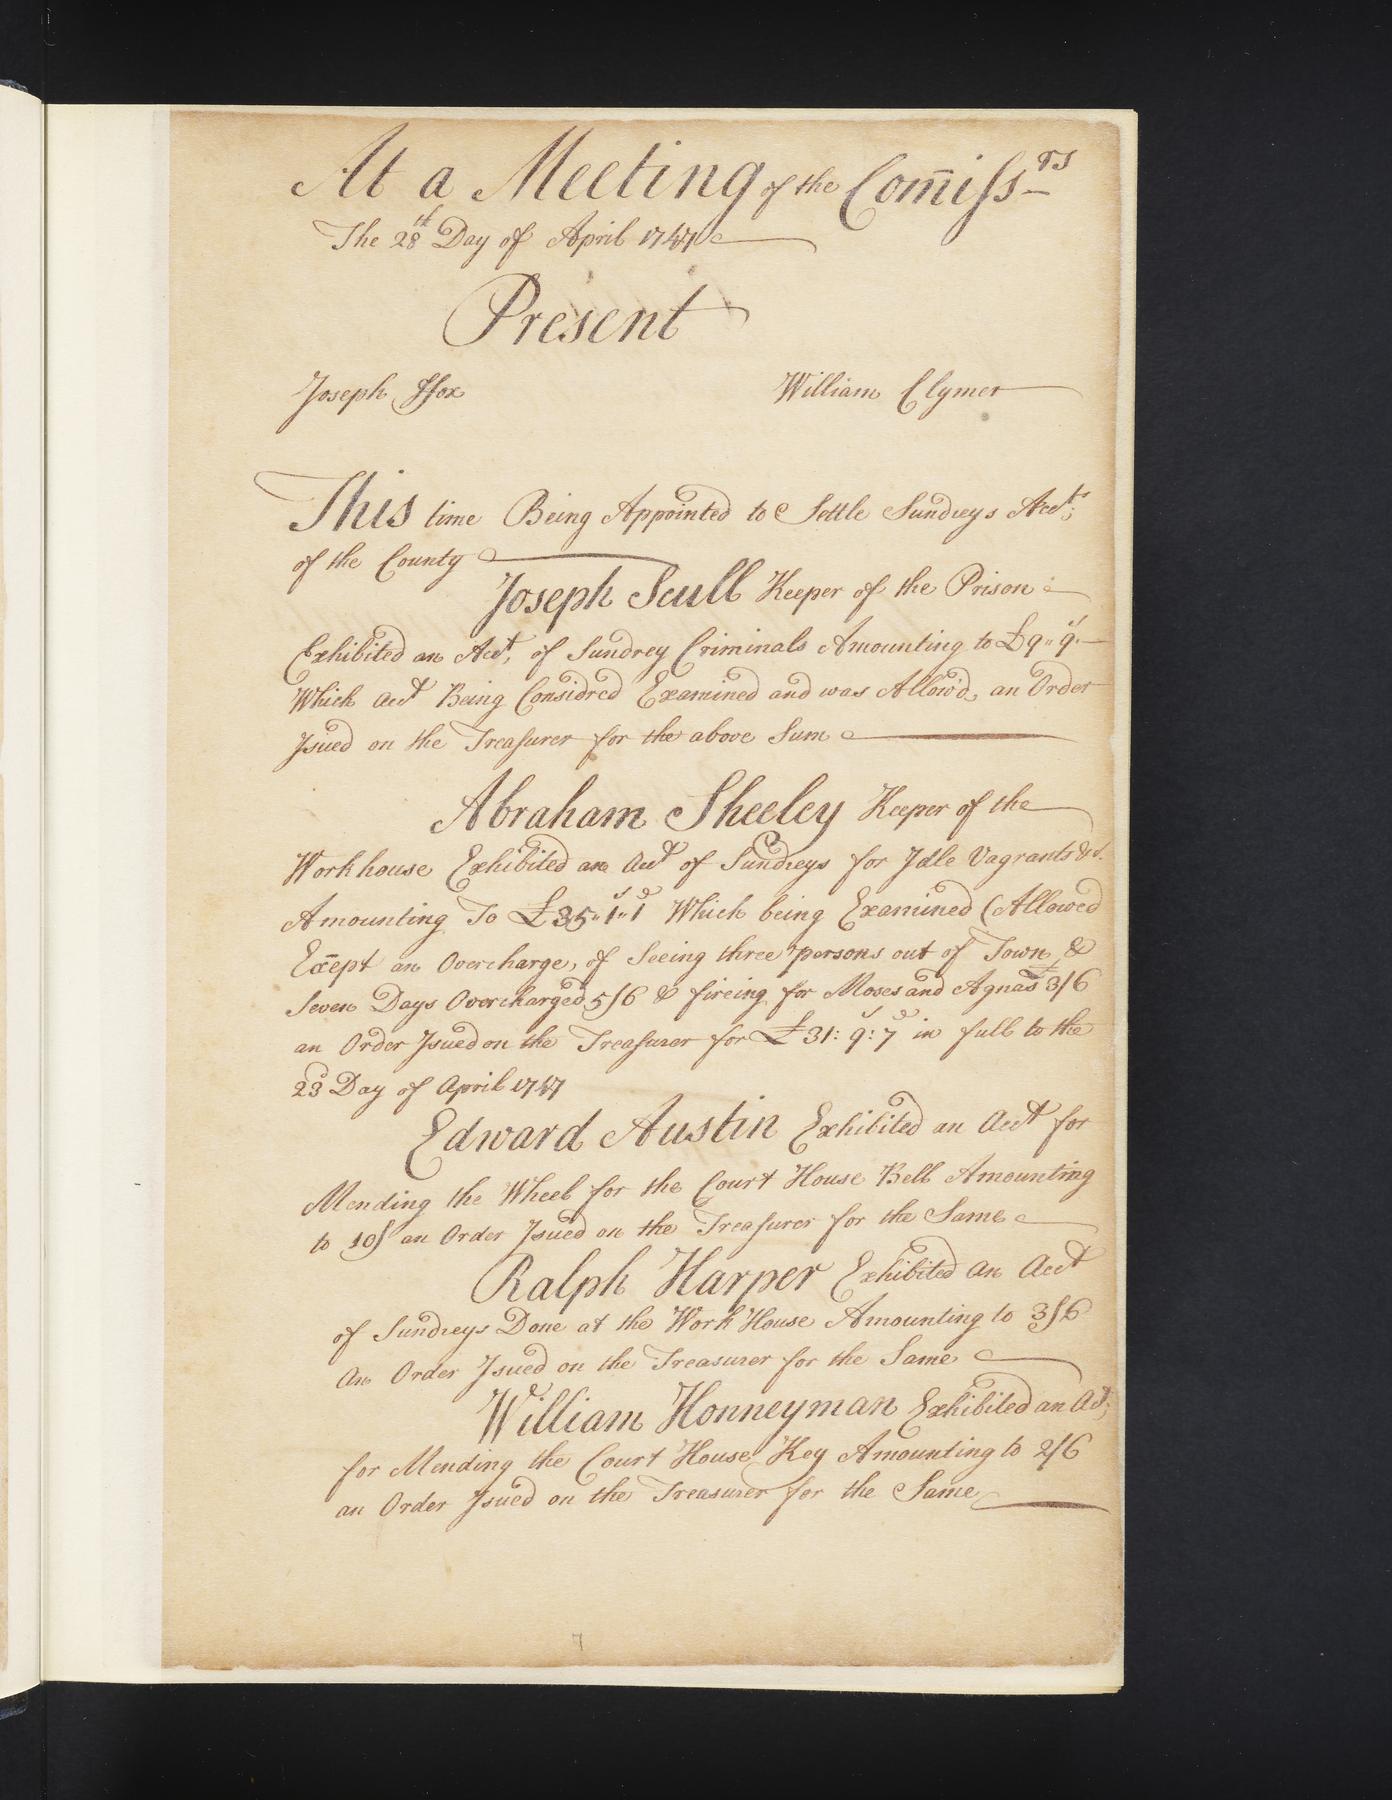 At a Meeting of the Com̄iss^rs
The 28th Day of April 1747
Present
Joseph ffox William Clymer
This time Being Appointed to Settle Sundreys Acc^ts;
of the County
Joseph Scull Keeper of the Prison
Exhibited an Acct, of Sundrey Criminals Amounting to £9"9^s"—
Which Acct Being Considred Examined and was Allow'd, an Order
Isued on the Treasurer for the above Sum
Abraham Sheeley Keeper of the
Workhouse Exhibited an Acct of Sundreys for Idle Vagrants &c.
Amounting To £35"1^s"1^d Which being Examined (Allowed
Exc̄ept an Overcharge, of Seeing three persons out of Town, &
Seven Days Overcharged 5/6 & fireing for Moses and Agnas 3/6
an Order Isued on the Treasurer for £31:9^s:7^d in full to the
23d Day of April 1747
Edward Austin Exhibited an Acct for
Mending the Wheel for the Court House Bell Amounting
to 10/ an Order Isued on the Treasurer for the Same
Ralph Harper Exhibited An Acct
of Sundreys Done at the Work House Amounting to 3/6
An Order Isued on the Treasurer for the Same
William Honneyman Exhibited an Act;
for Mending the Court House Key Amounting to 2/6
an Order Isued on the Treasurer for the Same
7